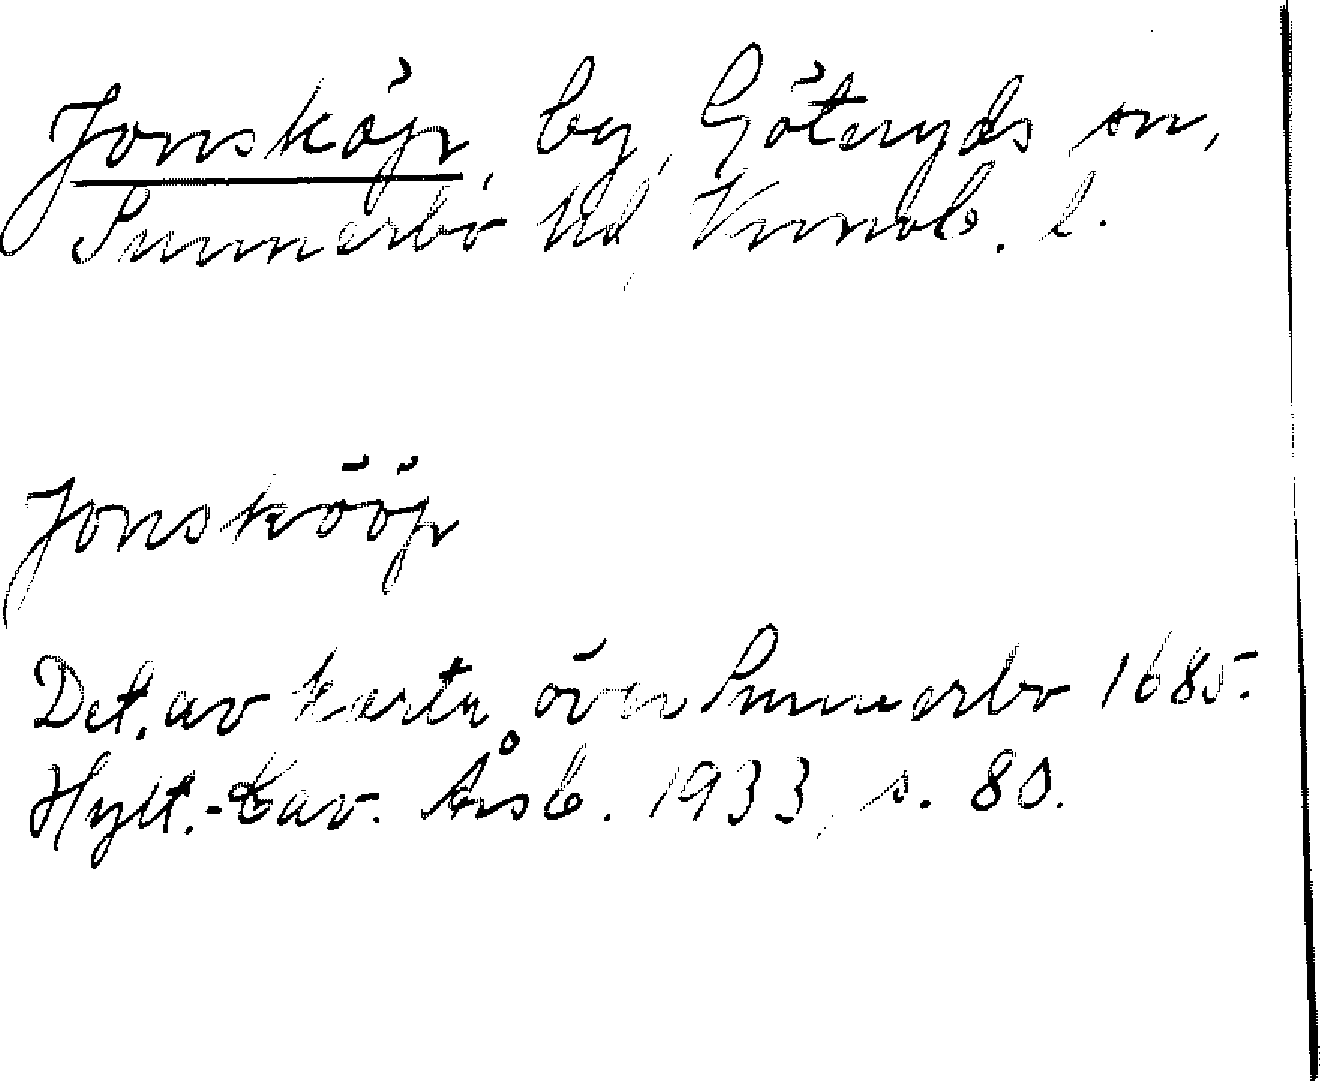 Jonsköp, by, Göteryds sn,
Sunnerbo hd, Kronob. l.
Jonskööp
Det. av karta över Sunnerbo 1685.
Hylt.-Cav. Årsb. 1933, s. 80.